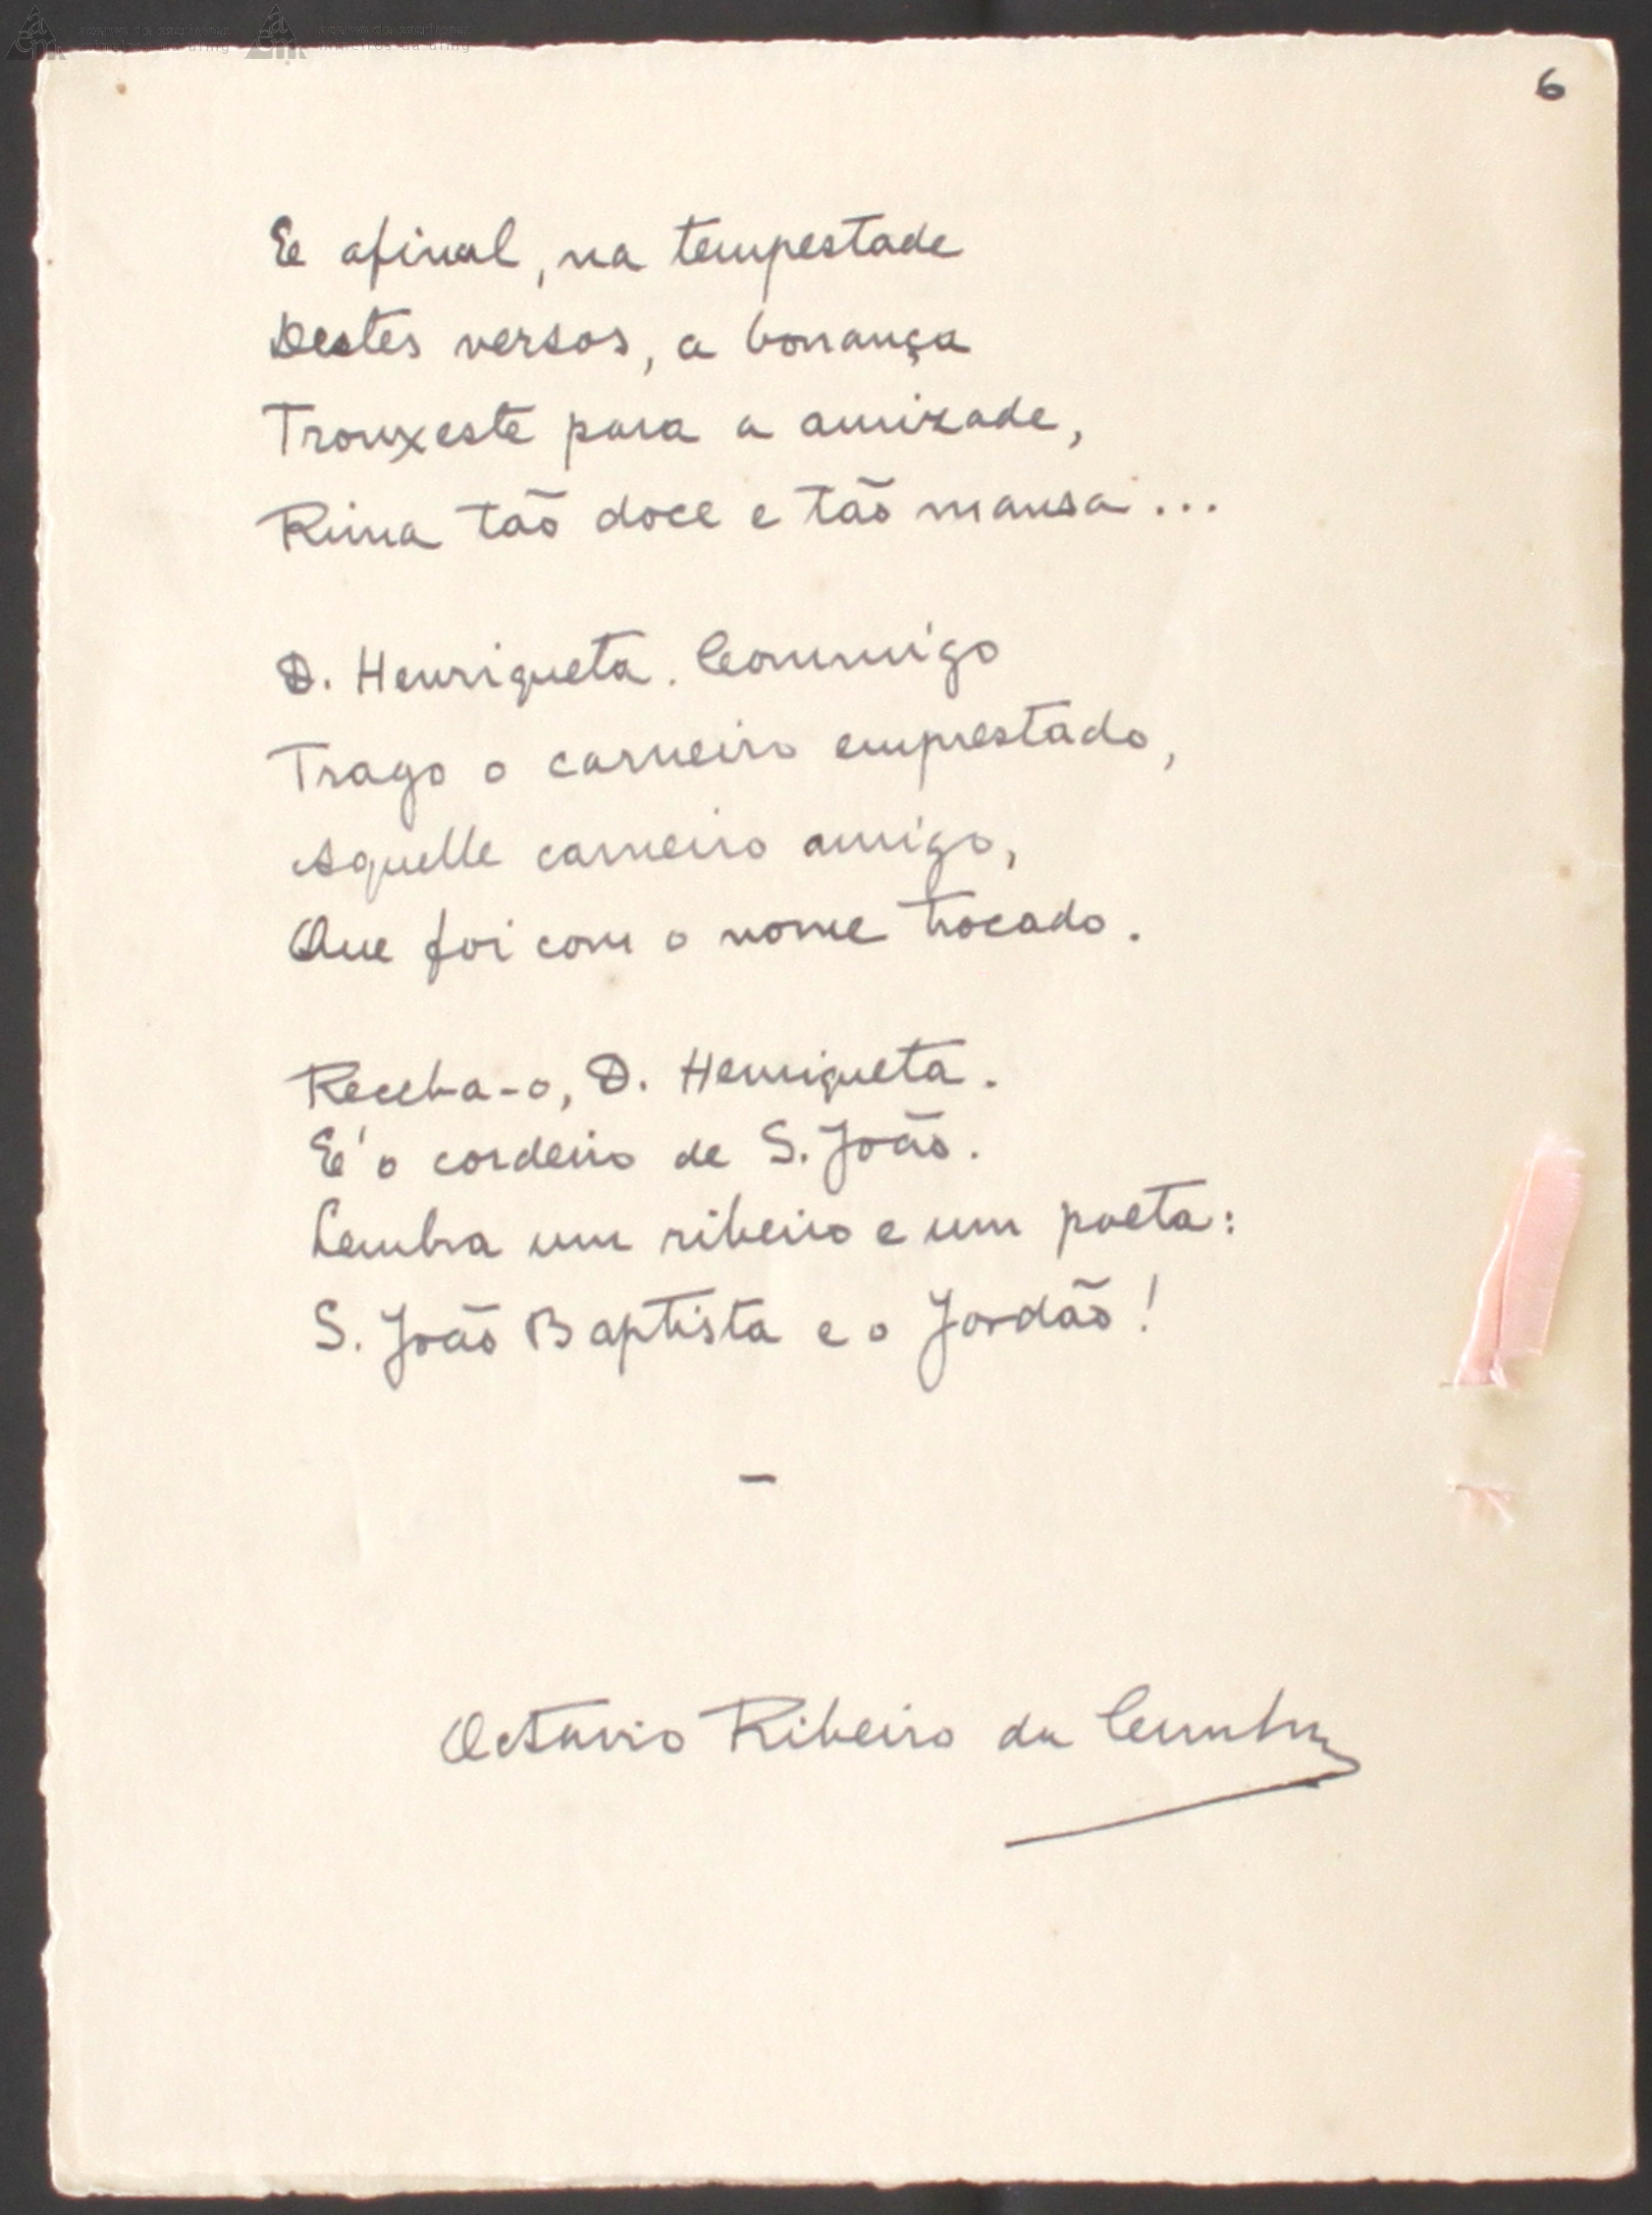 acervo de escritores
mineiros da ufmg
acervo de escritores
mineiros da ufmg
6
E afinal, na tempestade
Destes versos, a bonança
Trouxeste para a amizade,
Rima tão doce e tão mansa...
D. Henriqueta. Commigo
Trago o carneiro emprestado,
Aquelle carneiro amigo,
Que foi com o nome trocado.
Receba-o, D. Henriqueta.
E' o cordeiro de S. João.
Lembra um ribeiro e um poeta:
S. João Baptista e o Jordão!
—
Octavio Ribeiro da Cunha